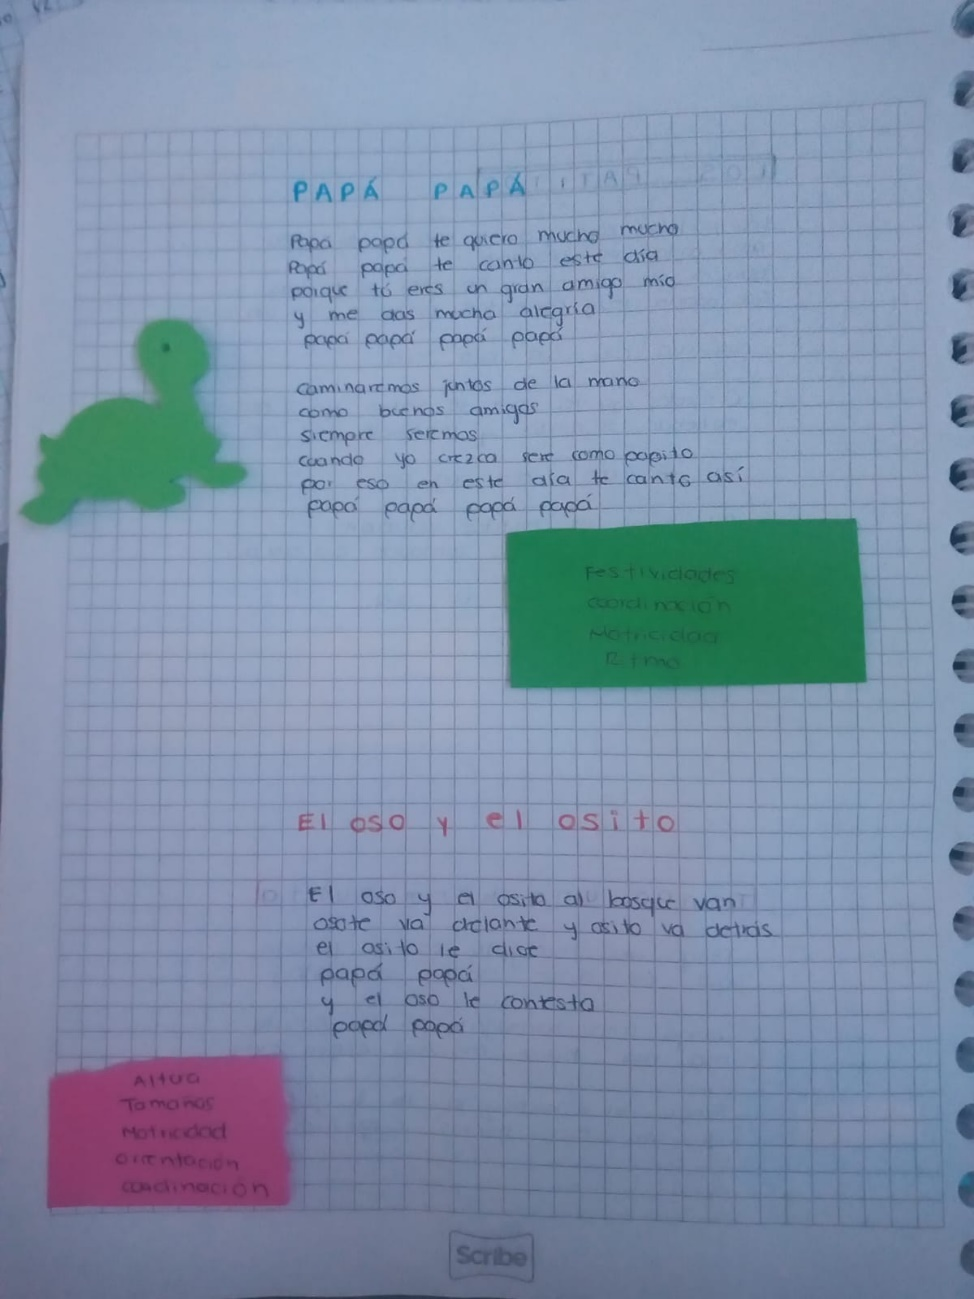 PAPÁ PAPÁ
Papá papá te quiero mucho mucho
Papá papá te canto este día
porque tú eres un gran amigo mío
y me das mucha alegría
papá papá papá papá
caminaremos juntos de la mano
como buenos amigos
siempre seremos
cuando yo crezca seré como papito
por eso en este día te canto así
papá papá papá papá
Festividades
coordinación
Motricidad
Ritmo
El oso y el osito
El oso y el osito al bosque van
osote va delante y osito va detrás
el osito le dice
papá papá
y el oso le contesta
papá papá
Altua
Tamaños
Motricidad
orientación
coordinación
Scribe